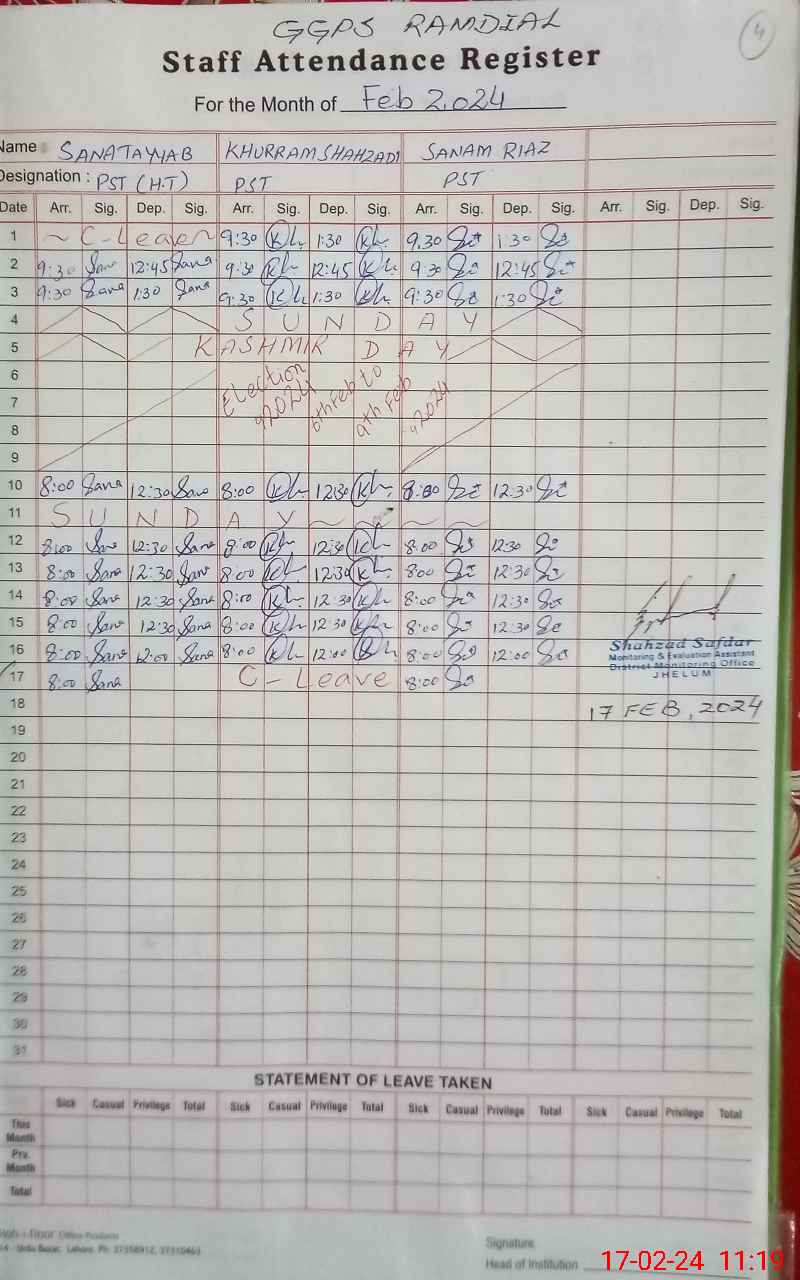 4
GGPS RAMDIAL
Staff Attendance Register
For the Month of Feb 2024
Name : SANATAYYAB KHURRAM SHAHZADI SANAM RIAZ
Designation : PST (H.T) PST PST
Date Arr. Sig. Dep. Sig. Arr. Sig. Dep. Sig. Arr. Sig. Dep. Sig. Arr. Sig. Dep. Sig.
1 ~ C-Leave 9:30 Kh. 1:30 Kh. 9.30 1:30
2 9:30 Sana 12:45 Sana 9:30 Kh. 12:45 Kh. 9 30 12:45
3 9:30 Sana 1:30 Sana 9:30 Kh 1:30 Kh. 9:30 1:30
4 S U N D A Y
5 KASHMIR D A Y
6 Election 2024 6th Feb to 9th Feb, 2024
7
8
9
10 8:00 Sana 12:30 Sana 8:00 Kh. 12:30 Kh. 8:00 12:30
11 S U N D A Y ~ ~ ~ ~
12 8:00 Sana 12:30 Sana 8:00 Kh. 12:30 Kh 8.00 12:30
13 8:00 Sana 12:30 Sana 8:00 Kh. 12:30 Kh. 8:00 12:30
14 8:00 Sana 12:30 Sana 8:00 Kh. 12:30 Kh 8:00 12:30
15 8:00 Sana 12:30 Sana 8:00 Kh 12:30 Kh 8:00 12:30
16 8:00 Sana 12:00 Sana 8:00 Kh 12:00 Kh 8:00 12:00
Shahzad Safdar
Monitoring & Evaluation Assistant
District Monitoring Office
JHELUM
17 8:00 Sana C - Leave 8:00
18 17 FEB, 2024
19
20
21
22
23
24
25
26
27
28
29
30
31
STATEMENT OF LEAVE TAKEN
Sick Casual Privilege Total Sick Casual Privilege Total Sick Casual Privilege Total Sick Casual Privilege Total
This Month
Pre. Month
Total
Office Products
Urdu Bazar, Lahore. Ph: 37358912, 37310463
Signature
Head of Institution
17-02-24 11:19